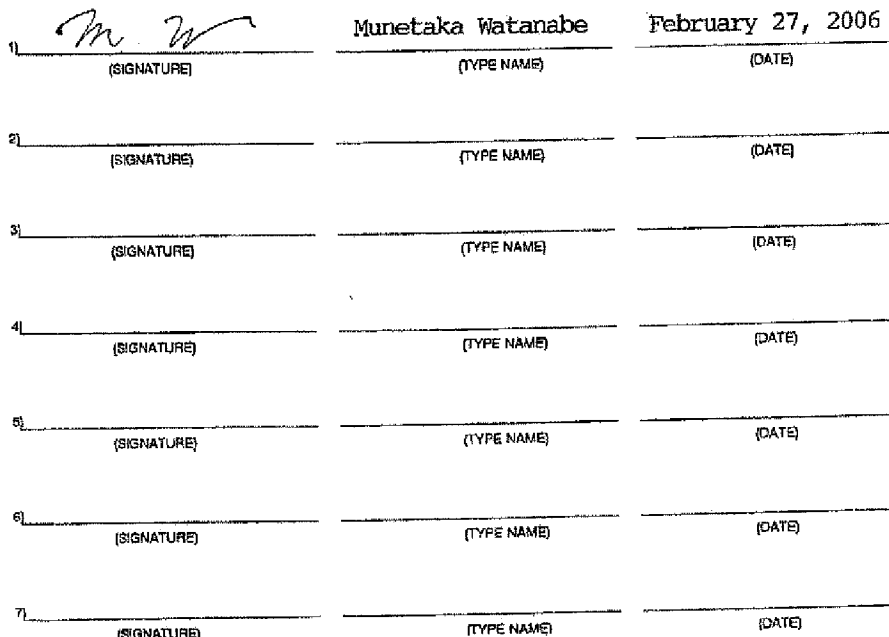 M. W Munetaka Watanabe February 27, 2006
1)
(SIGNATURE) (TYPE NAME) (DATE)
2)
(SIGNATURE) (TYPE NAME) (DATE)
3)
(SIGNATURE) (TYPE NAME) (DATE)
4)
(SIGNATURE) (TYPE NAME) (DATE)
5)
(SIGNATURE) (TYPE NAME) (DATE)
6)
(SIGNATURE) (TYPE NAME) (DATE)
7)
(SIGNATURE) (TYPE NAME) (DATE)